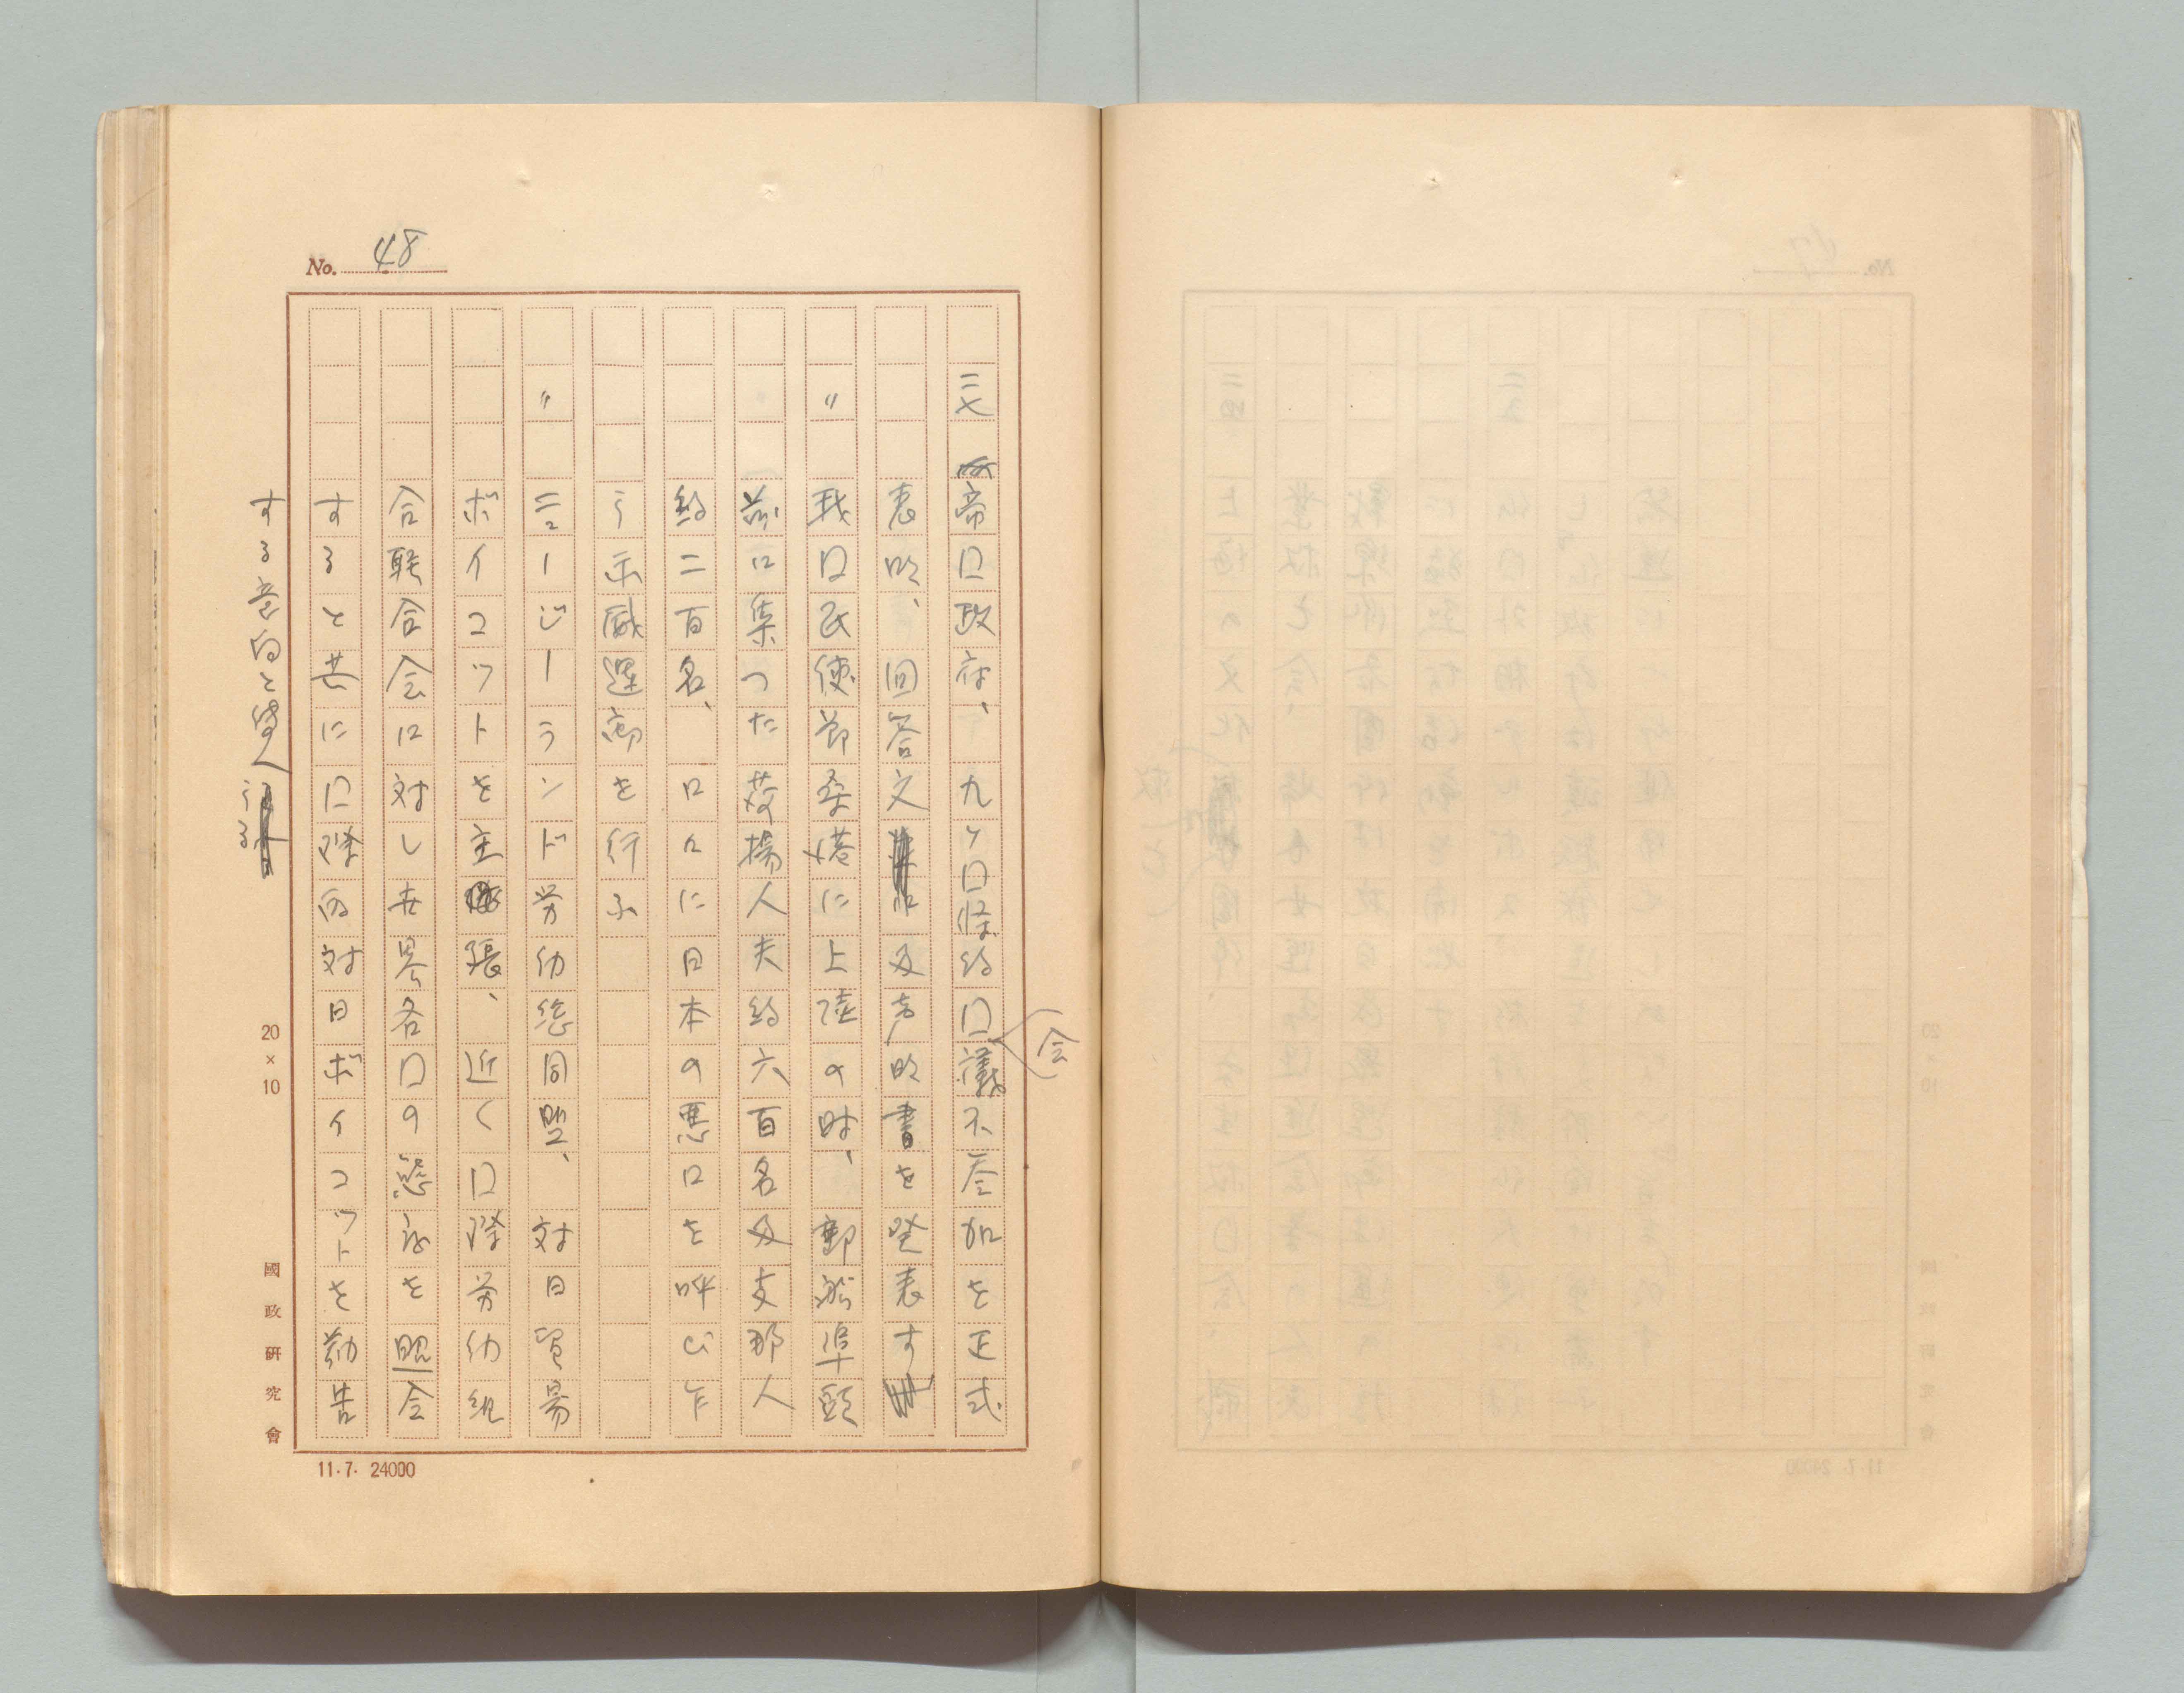 No. 48
二七 帝口政府、九ヶ口条約口会議不参加を正式
表明、回答文及声明書を発表す
〃 我口民使節桑港に上陸の時、郵船埠頭
前に集つた荷揚人夫約六百名及支那人
約二百名、口々に日本の悪口を呼び乍
ら示威運動を行ふ
〃 ニュージーランド労働総同盟、対日貿易
ボイコットを主張、近く口際労働組
合聯合会に対し世界各口の態度を照会
すると共に口際的対日ボイコットを勧告
する意向と伝へらる
20×10
國政研究會
11.7. 24000